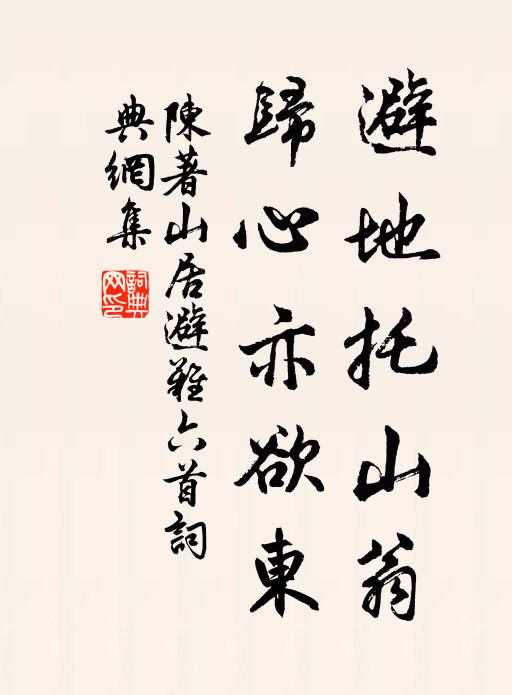 避地托山翁
歸心亦欲東
陳著山居避難六首詞
典網集
詞典
网印